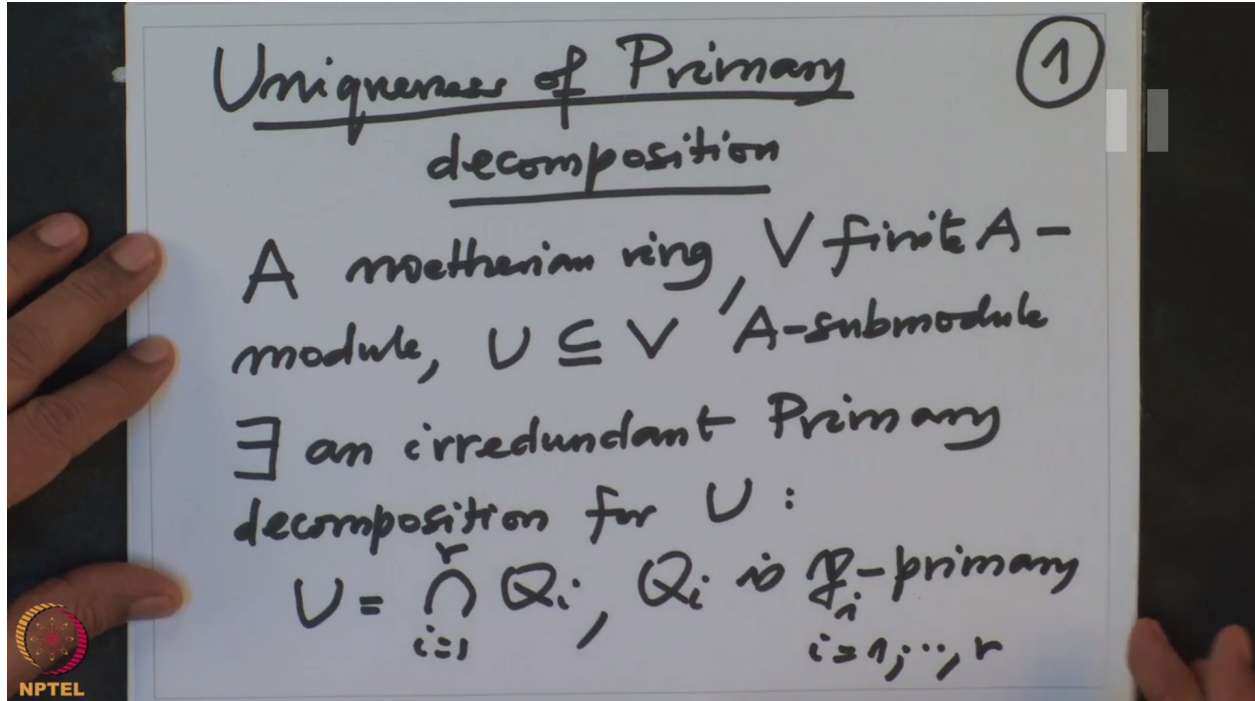 Uniqueness of Primary
①
decomposition
A noetherian ring, V finite A-
module, U ⊆ V A-submodule
∃ an irredundant Primary
decomposition for U :
U = ⋂_{i=1}^{r} Q_i, Q_i is 𝔭_i-primary
i=1,⋯,r
NPTEL